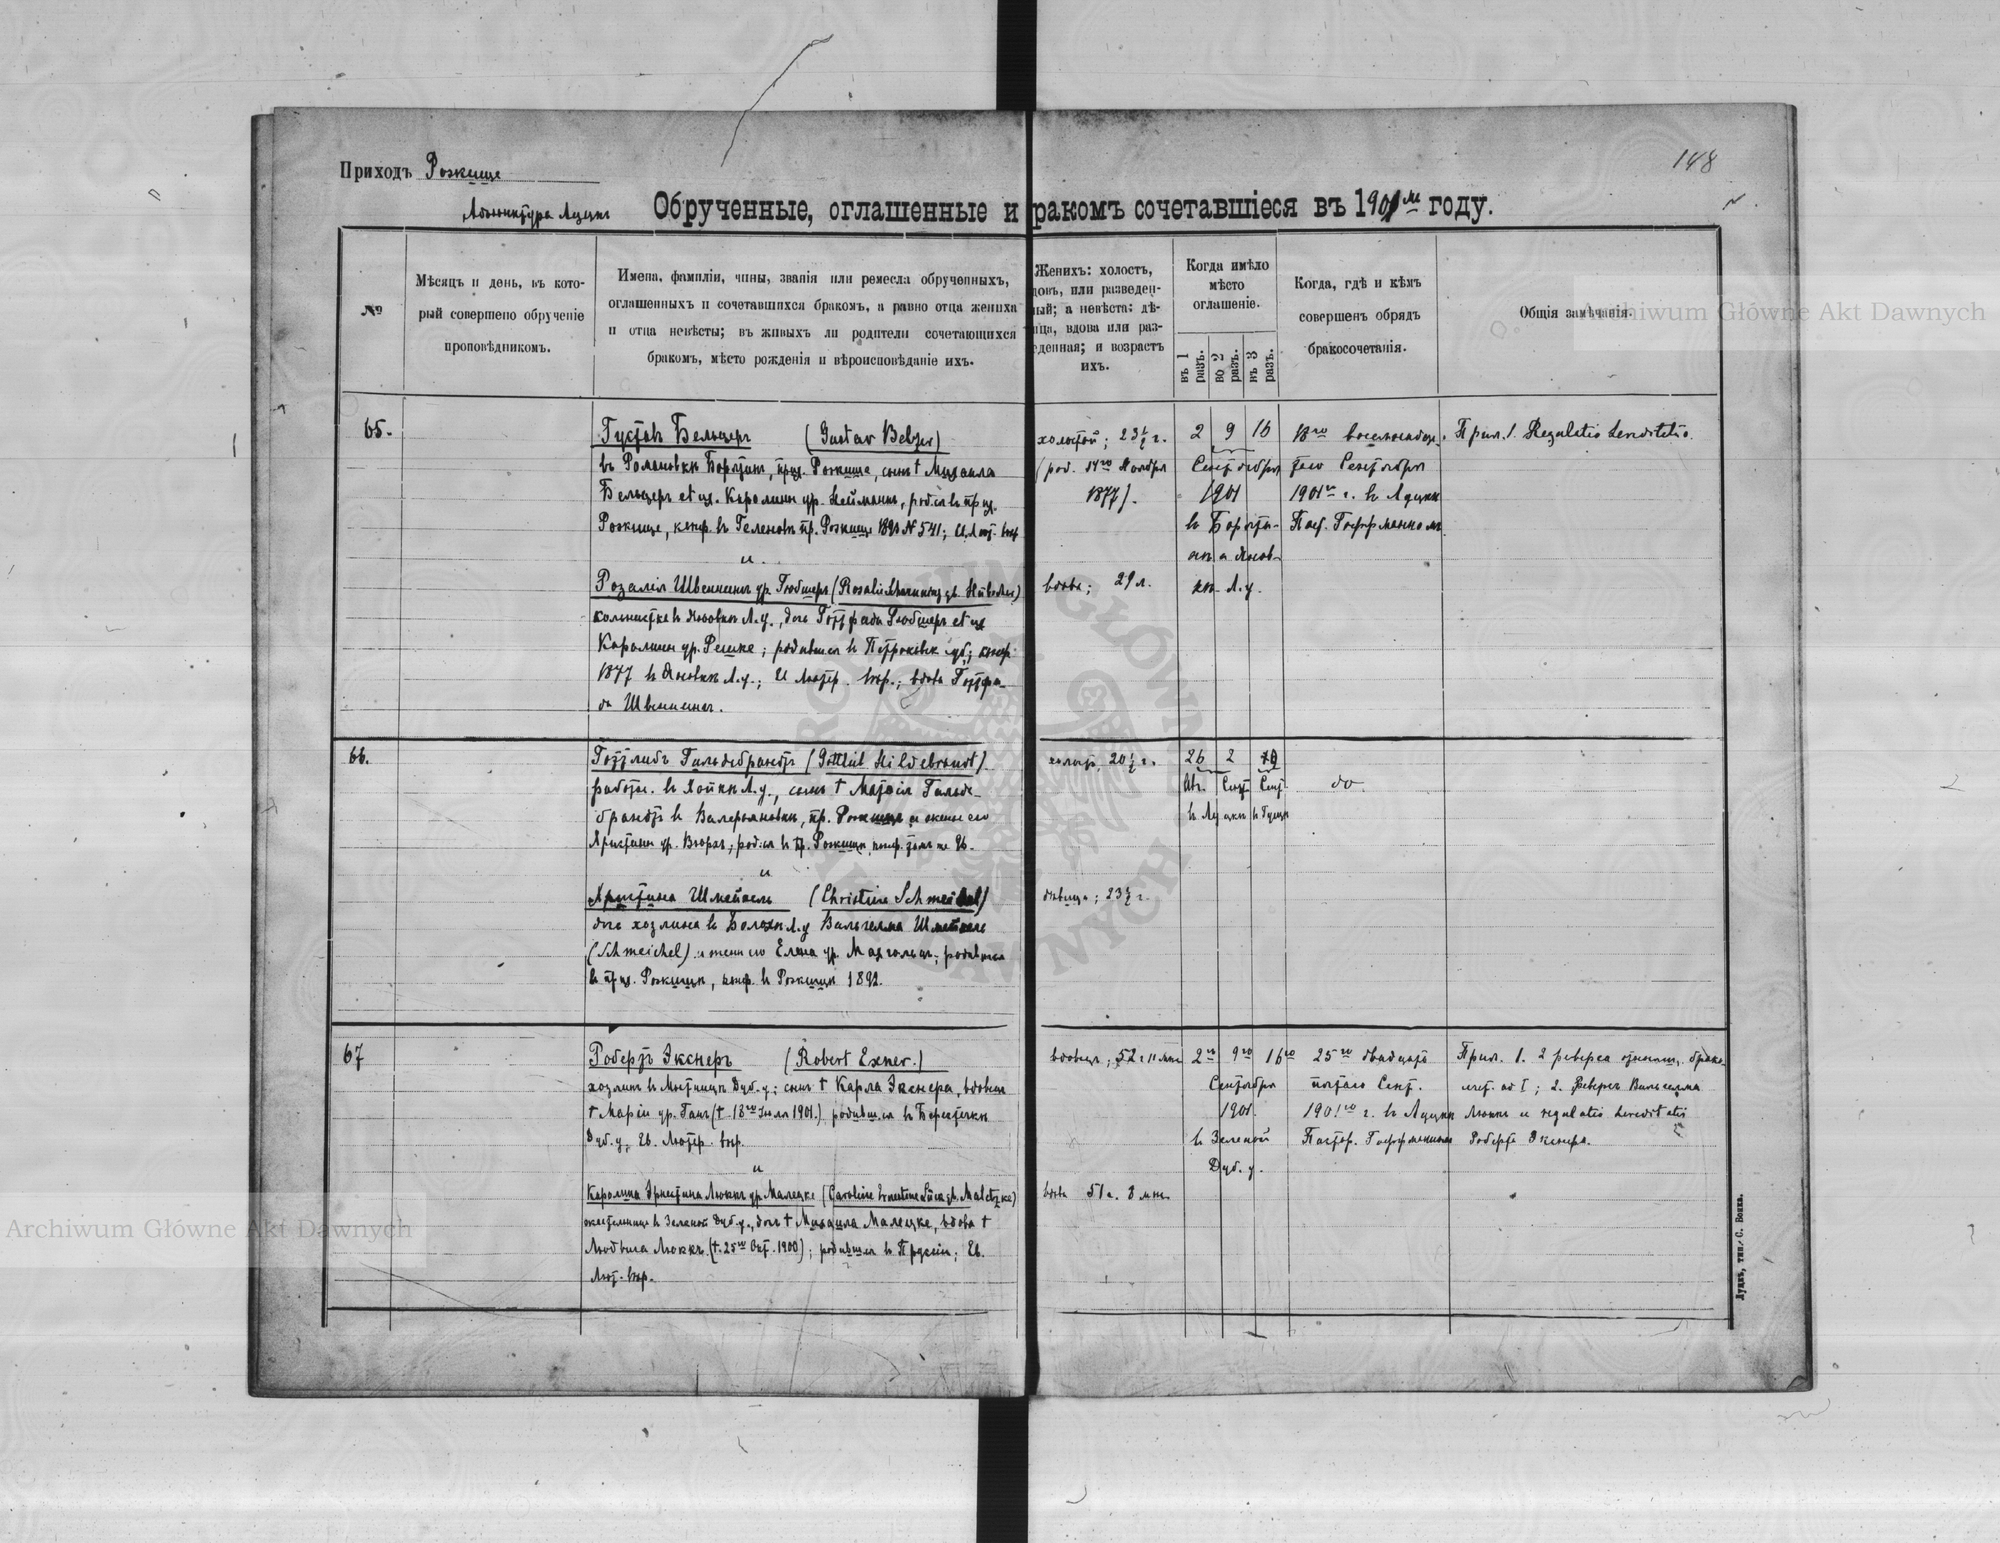 Приходъ Рожище
Адъюнктура Луцкъ
148
Обрученные, оглашенные и бракомъ сочетавшіеся въ 1901 году.
№
Мѣсяцъ и день, въ кото-
рый совершено обрученіе
проповѣдникомъ.
Имена, фамиліи, чины, званія или ремесла обрученныхъ,
оглашенныхъ и сочетавшихся бракомъ, а равно отца жениха
и отца невѣсты; въ живыхъ ли родители сочетающихся
бракомъ, мѣсто рожденія и вѣроисповѣданіе ихъ.
Женихъ: холостъ,
довъ, или разведен-
ный; а невѣста: дѣ-
ица, вдова или раз-
еденная; и возрастъ
ихъ.
Когда имѣло
мѣсто
оглашеніе.
въ 1 разъ.
во 2 разъ.
въ 3 разъ.
Когда, гдѣ и кѣмъ
совершенъ обрядъ
бракосочетанія.
Общія замѣчанія.
65.
Густавъ Бельцеръ (Gustav Belzer)
въ Романовкѣ сынъ † Михаила
Бельцеръ Каролины ур. Нейманъ, род.ся въ
Рожище, конф. въ пр. Рожище 1893 № 541;
и
Розалія ур. Гюбшеръ (Rosalie
колонистка въ Яновкѣ Л.у., дочь Готфрида Гюбшеръ
Каролины ур. Решке; родившаяся въ Петроковск. губ.; конф.
1877 въ Яновкѣ Л.у.; Лютер. вѣр.; вдова Готфри-
да
холостой; 23 ½ г.
(род. 14го Ноября
1877).
вдова; 29 л.
2 9 16
Сентября
1901
въ Бораты-
нѣ и Янов-
кѣ Л.у.
18го восемнадца-
таго Сентября
1901го г. въ Луцкѣ
Паст. Гофрманномъ
Прил. 1. Regulatio hereditatis.
66.
Готтлибъ Гильдебрандтъ (Gottlieb Hildebrandt)
работн. въ Л.у., сынъ † Матвія Гильде-
брандтъ въ Валерьяновкѣ, пр. Рожище и жены его
Христины ур. род.ся въ пр. Рожище, конф. тамъ же Ев.
и
Христина Шмейхель (Christine Schmeichel)
дочь хозяина въ Л.у. Вильгельма Шмейхель
(Schmeichel) и жены его Елена ур. родившаяся
въ прих. Рожищѣ, конф. въ Рожищѣ 1892.
холост. 20 ½ г.
дѣвица; 23 ½ г.
26 2
Авг. Сент. Сент.
въ Луцкѣ
до
67
Робертъ Экснеръ (Robert Exner.)
хозяинъ въ Дуб. у.; сынъ † Карла Экснера, вдовецъ
† Маріи ур. Ганъ († 18го Іюля 1901.) родившся въ Берестечкѣ
Дуб. у., Ев. Лютер. вѣр.
и
Каролина Эрнестина Люккъ ур. Малецке (Caroline Ernestine Lück geb. Maletzke)
въ Зеленой Дуб. у., дочь † Михаила Малецке, вдова †
Людвига Люккъ († 25го Окт. 1900); родившся въ Пруссіи; Ев.
Лют. вѣр.
вдовецъ; 52 г. 11 мѣс.
вдова 51 г. 8 мѣс.
2го 9го 16го
Сентября
1901
въ Зеленой
Дуб. у.
25го двадцать
пятаго Сент.
1901го г. въ Луцкѣ
Пастор. Гофрманномъ
Прил. 1. 2 реверса
ad I; 2. Реверсъ Вильгельма
Люккъ и regulatio hereditatis
Роберта Экснера.
Луцкъ, тип. С. Бонка.
Archiwum Główne Akt Dawnych
Archiwum Główne Akt Dawnych